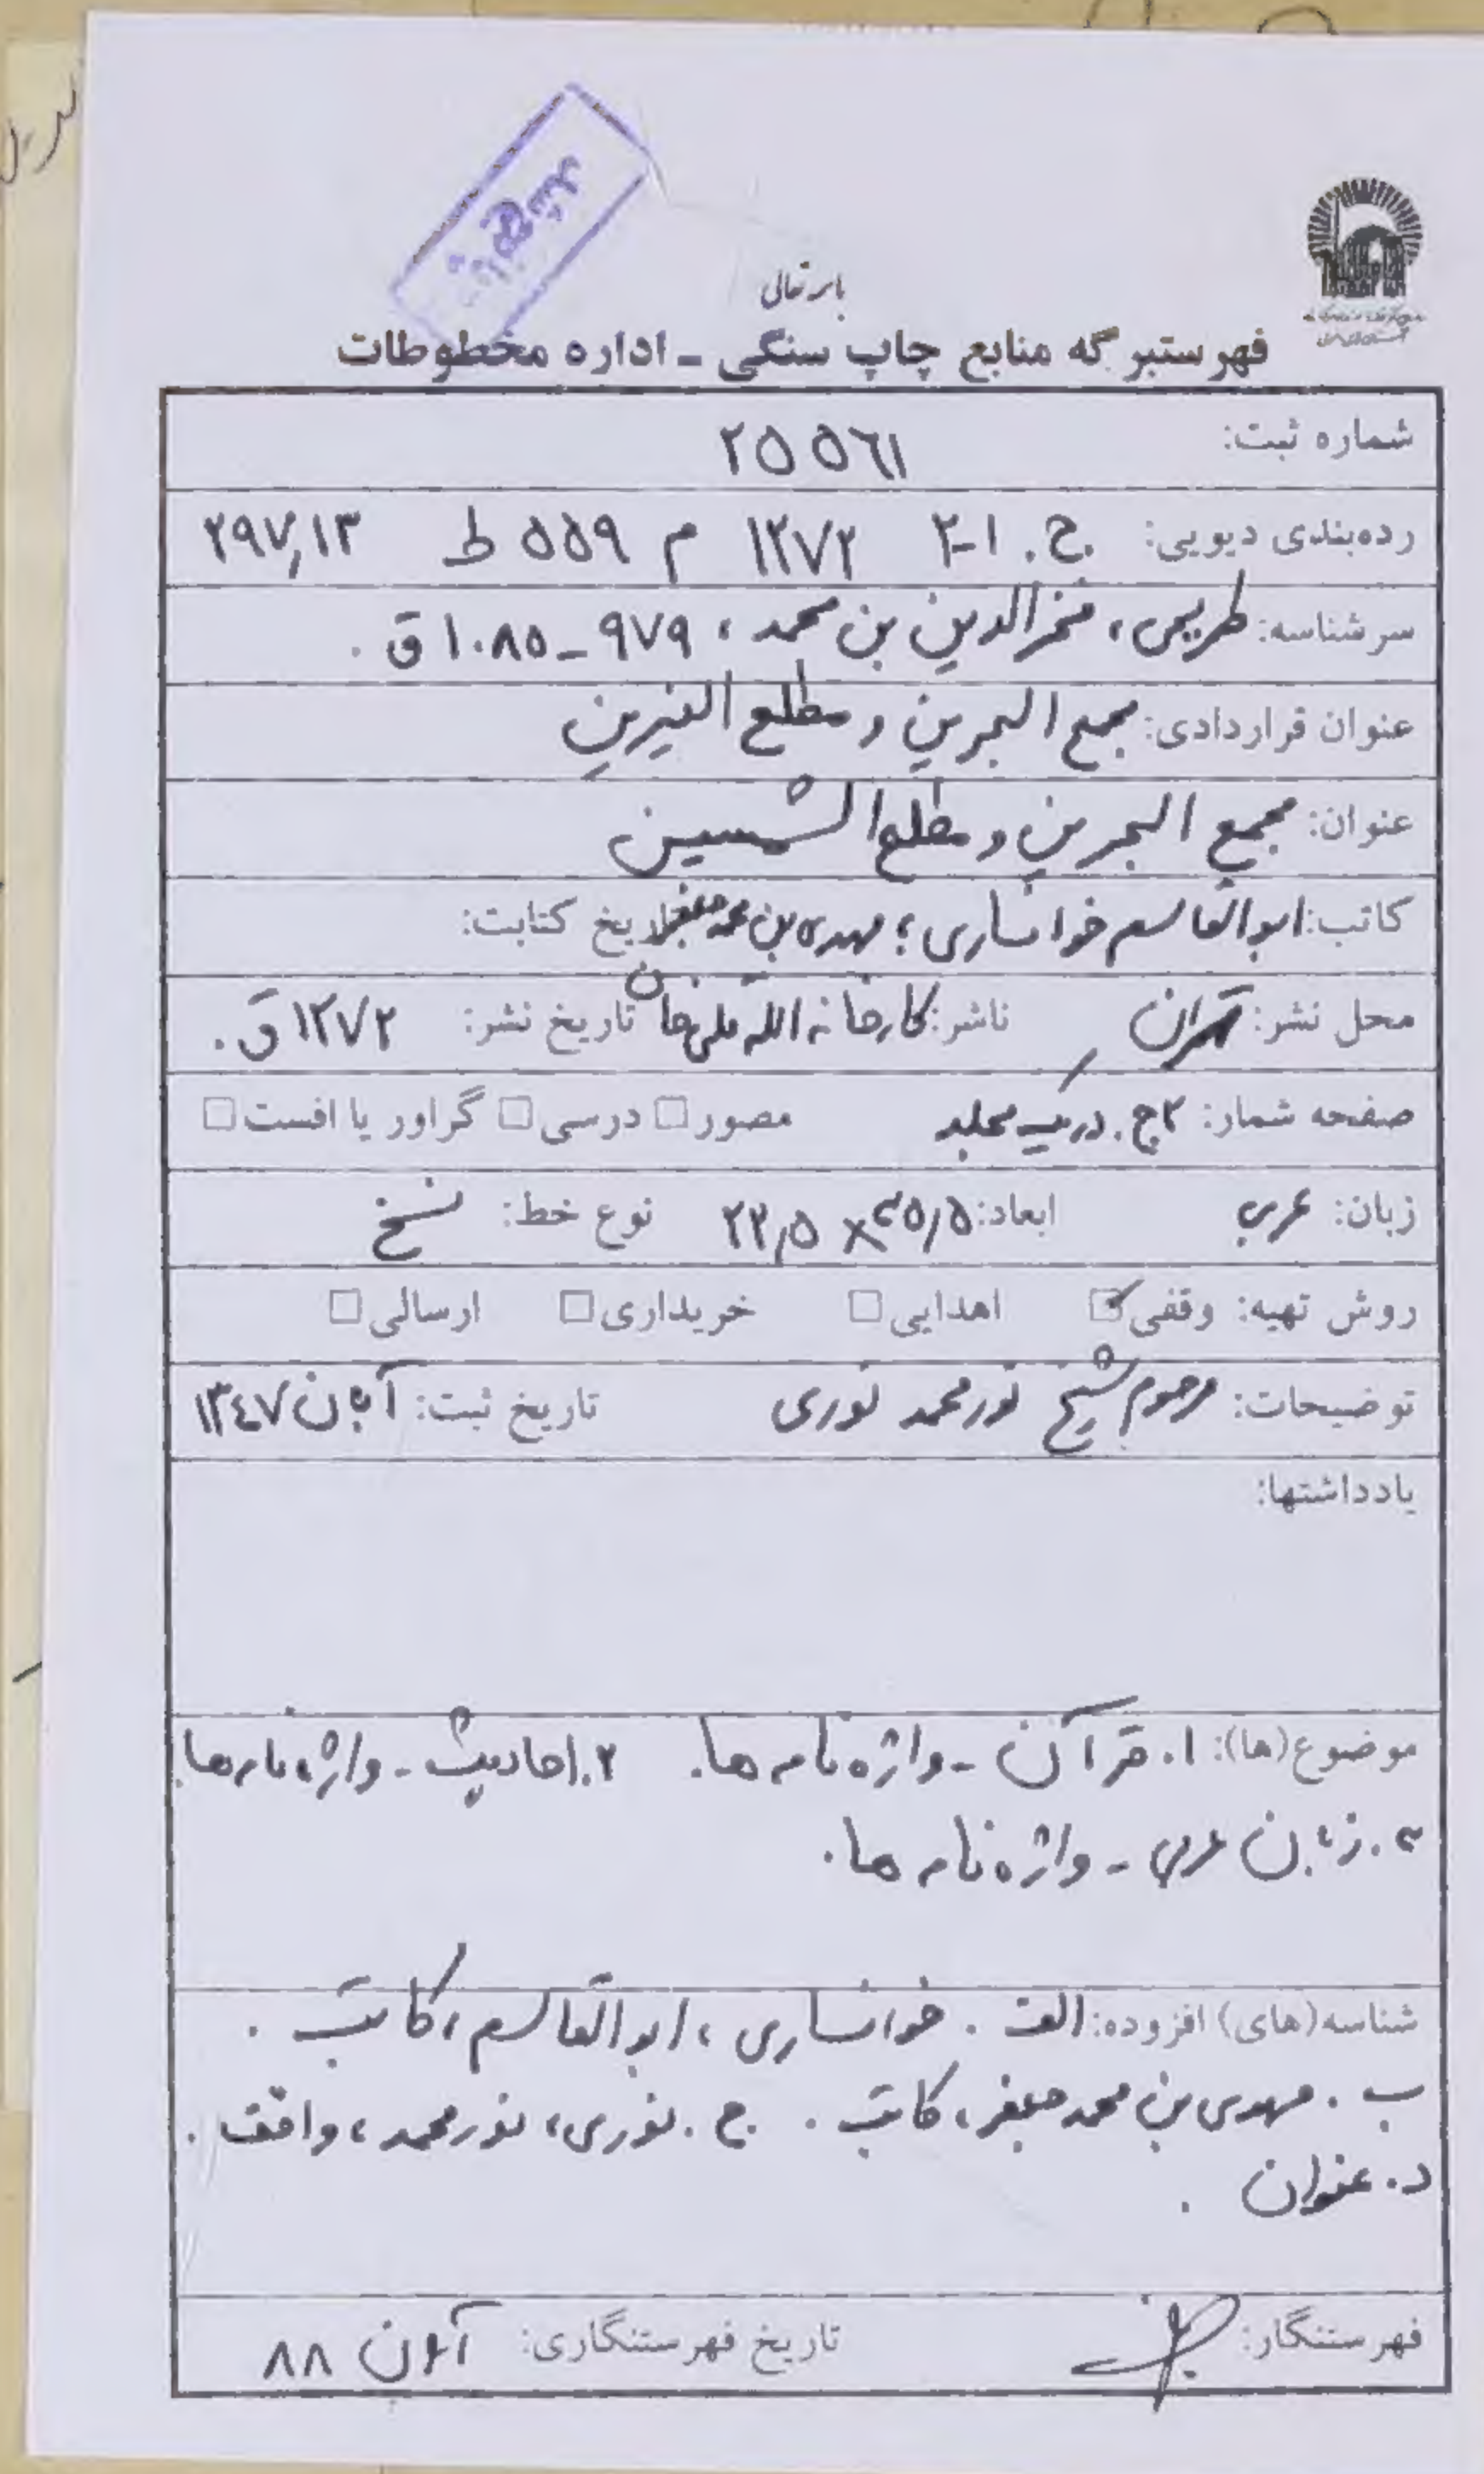 باسمه تعالی
فهرستبرگه منابع چاپ سنگی ـ اداره مخطوطات
شماره ثبت: ۲۵۵۶۱
رده‌بندی دیویی: ج. ۱-۲ ۱۲۷۲ م ۵۵۹ ط ۲۹۷,۱۳
سرشناسه: طریحی، فخرالدین بن محمد، ۹۷۹ ـ ۱۰۸۵ ق.
عنوان قراردادی: مجمع البحرین و مطلع النیرین
عنوان: مجمع البحرین و مطلع الشمسین
کاتب: ابوالقاسم خوانساری؛ مهدی بن محمد جعفر تاریخ کتابت:
محل نشر: تهران ناشر: کارخانه الله قلی خان تاریخ نشر: ۱۲۷۲ ق.
صفحه شمار: ۲ ج. در یک مجلد مصور□ درسی□ گراور یا افست□
زبان: عربی ابعاد: ۳۵/۵ × ۲۲/۵ نوع خط: نسخ
روش تهیه: وقفی☑ اهدایی□ خریداری□ ارسالی□
توضیحات: مرحوم شیخ نورمحمد نوری تاریخ ثبت: آبان ۱۳۴۷
یادداشتها:
موضوع(ها): ۱. قرآن - واژه نامه ها. ۲. احادیث - واژه نامه ها.
۳. زبان عربی - واژه نامه ها.
شناسه(های) افزوده: الف. خوانساری، ابوالقاسم، کاتب.
ب. مهدی بن محمد جعفر، کاتب. ج. نوری، نورمحمد، واقف.
د. عنوان.
فهرستنگار: تاریخ فهرستنگاری: آبان ۸۸